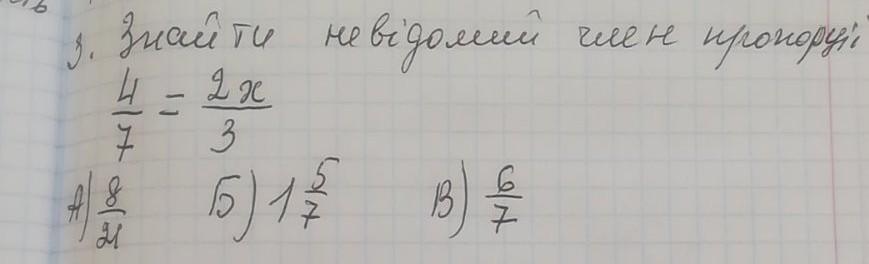 3. Знайти невідомий член пропорції
4/7 = 2x/3
А) 8/21 Б) 1 5/7 В) 6/7